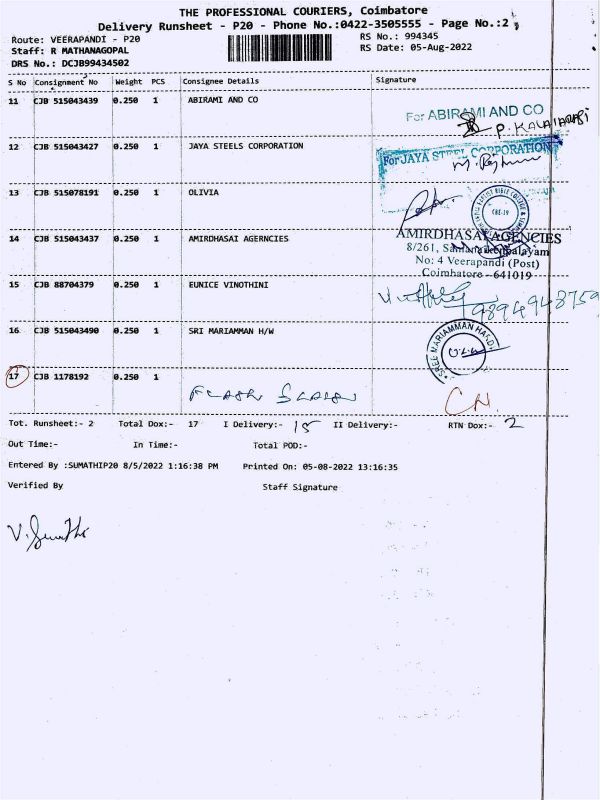 THE PROFESSIONAL COURIERS, Coimbatore
Delivery Runsheet - P20 - Phone No.:0422-3505555 - Page No.:2
Route: VEERAPANDI - P20
RS No.: 994345
Staff: R MATHANAGOPAL
RS Date: 05-Aug-2022
DRS No.: DCJB99434502
S No Consignment No Weight PCS Consignee Details Signature
11 CJB 515043439 0.250 1 ABIRAMI AND CO
For ABIRAMI AND CO
P. KALAIARASI
12 CJB 515043427 0.250 1 JAYA STEELS CORPORATION
For JAYA STEEL CORPORATION
13 CJB 515078191 0.250 1 OLIVIA
CBE-19
14 CJB 515043437 0.250 1 AMIRDHASAI AGERNCIES
AMIRDHASAI AGENCIES
8/261,
No: 4 Veerapandi (Post)
Coimbatore - 641019
15 CJB 88704379 0.250 1 EUNICE VINOTHINI
9894948759
16 CJB 515043490 0.250 1 SRI MARIAMMAN H/W
SREE MARIAMMAN HARD
17 CJB 1178192 0.250 1
CN.
Tot. Runsheet:- 2 Total Dox:- 17 I Delivery:- 15 II Delivery:- RTN Dox:- 2
Out Time:- In Time:- Total POD:-
Entered By :SUMATHIP20 8/5/2022 1:16:38 PM Printed On: 05-08-2022 13:16:35
Verified By Staff Signature
V. Sumathi